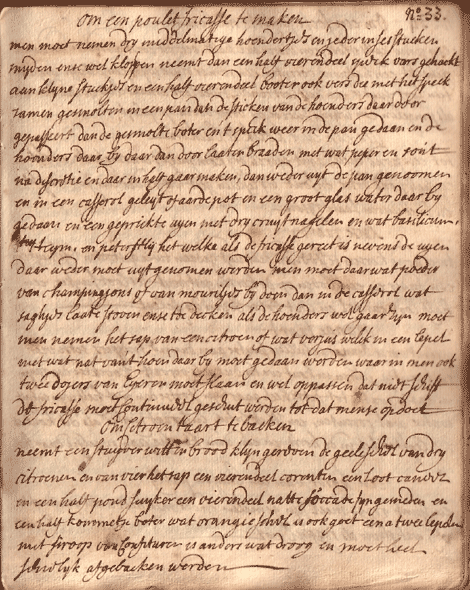 Om een poulet fricasse te maken
N:o 33.
men moet nemen dry middelmatige hoendertjes en jeder in ses stucken
snyden ense wel kloppen neemt dan een half vierendeel speck vars gehackt
aan klyne stuckjes en een half vierendeel booter ook vers die met het speck
samen gesmolten in een pan dan de sticken van de hoenders daar door
gepasseert dan de gesmolte boter en t speck weer in de pan gedaan en de
hoenders daar by daar dan door laaten braaden met wat peper en sout
na discretie en daar in half gaar maken, dan weder uyt de pan genoomen
en in een casserol geleyt of aarde pot en een groot glas water daar by
gedaan en een geprickte uyen met dry cruyt nagelen en wat basilicum,
theym, en petersely het welke als de fricasse gereet is nevens de uyen
daar weder moet uyt genomen werden men moet daar wat poeder
van champinjons of van mouriljes by doen dan in de casserol wat
sagtjes laate stoven ense te decken als de hoenders wel gaar syn moet
men nemen het sap van een citroen of wat verjus welk in een lepel
met wat nat van t hoen daar by moet gedaan werden waar in men ook
twee dojers van Eyeren moet slaan en wel oppassen dat niet schift
de fricasse moet continueel geschut werden tot dat mense opdoet
Om Citroen taart te backen
neemt een stuyver witten brood klyn gevreven de geele schel van dry
citroenen en van vier het sap een vierendeel corenten een loot caneel
en een half pond suyker een vierendeel natte succade syn gesneden en
een half kommetje boter wat oranje schel is ook goet een a twee lepelen
met siroop van confituren is anders wat droog en moet heel
schielyk afgebacken werden